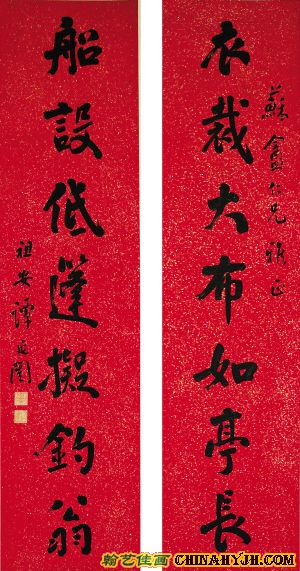 蘇盦仁兄雅正
衣裁大布如亭長
船設低篷擬釣翁
祖安譚延闓
翰艺佳画
CHINAHYJH.COM